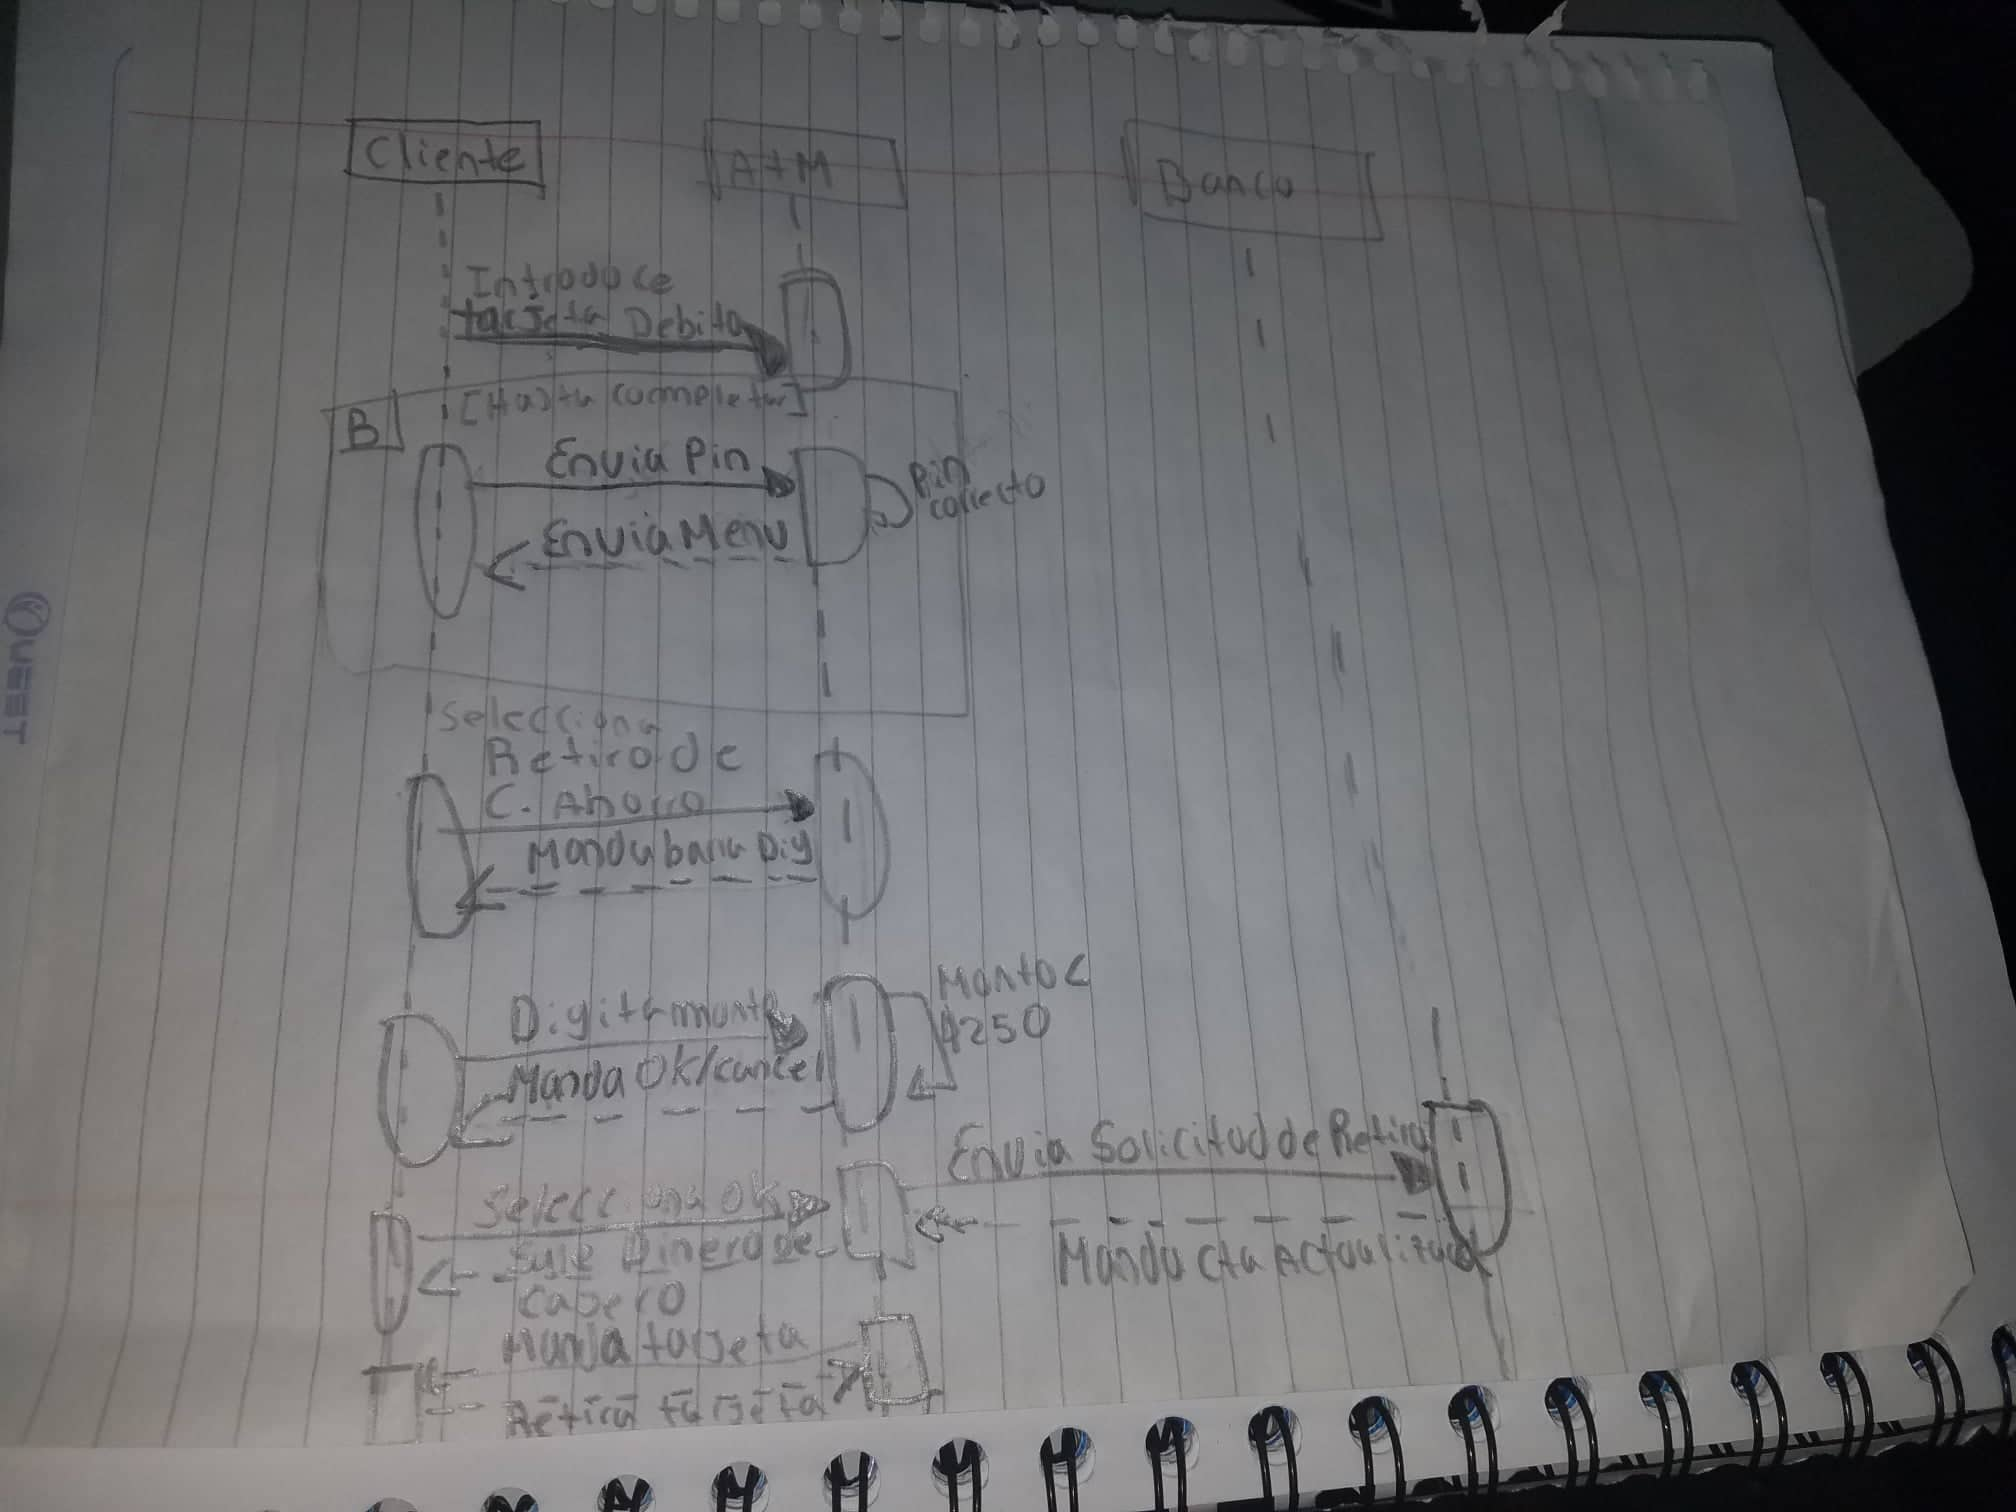 Cliente
A+M
Banco
Introduce
tarjeta Debito
[Hasta completar]
B
Envia Pin
Pin
correcto
Envia Menu
Selecciona
Retiro de
C. Ahorro
Manda barra Dig
Digita monto
Monto <
$250
Manda Ok/cancel
Envia Solicitud de Retiro
Selecciona Ok
Manda cta Actualizada
Sale Dinero de
cajero
Manda tarjeta
Retira tarjeta
QUEST